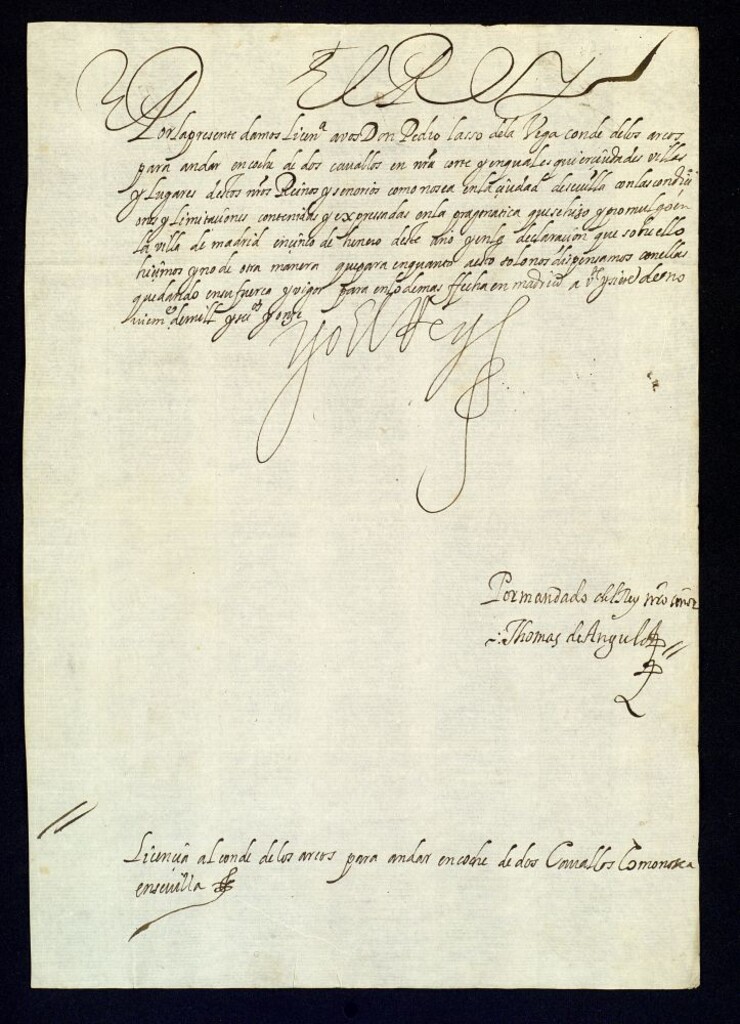 El Rey
Por la presente damos licen.ª a vos Don Pedro lasso dela Vega conde delos arcos
para andar en coche de dos cavallos en nr̃a corte y en quales quier ciudades villas
y lugares destos nr̃os Reinos y senorios como no sea en la ciudad de sevilla con las condici
ones y limitaciones contenidas y expresadas en la pragmatica que se hizo y promulgo en
la villa de madrid en cinco de henero deste año y en la declaracion que sobre ello
hicimos y no de otra manera que para en quanto a esto solo nos dispensamos con ellas
quedando en su fuerça y vigor para en lo demas ffecha en madrid a y siete de no
viem.e de mill y seis.os y onze
Yo el Rey
Por mandado del Rey nr̃o señor
Thomas de Angulo
Licencia al conde de los arcos para andar en coche de dos Cavallos Como no sea
en sevilla